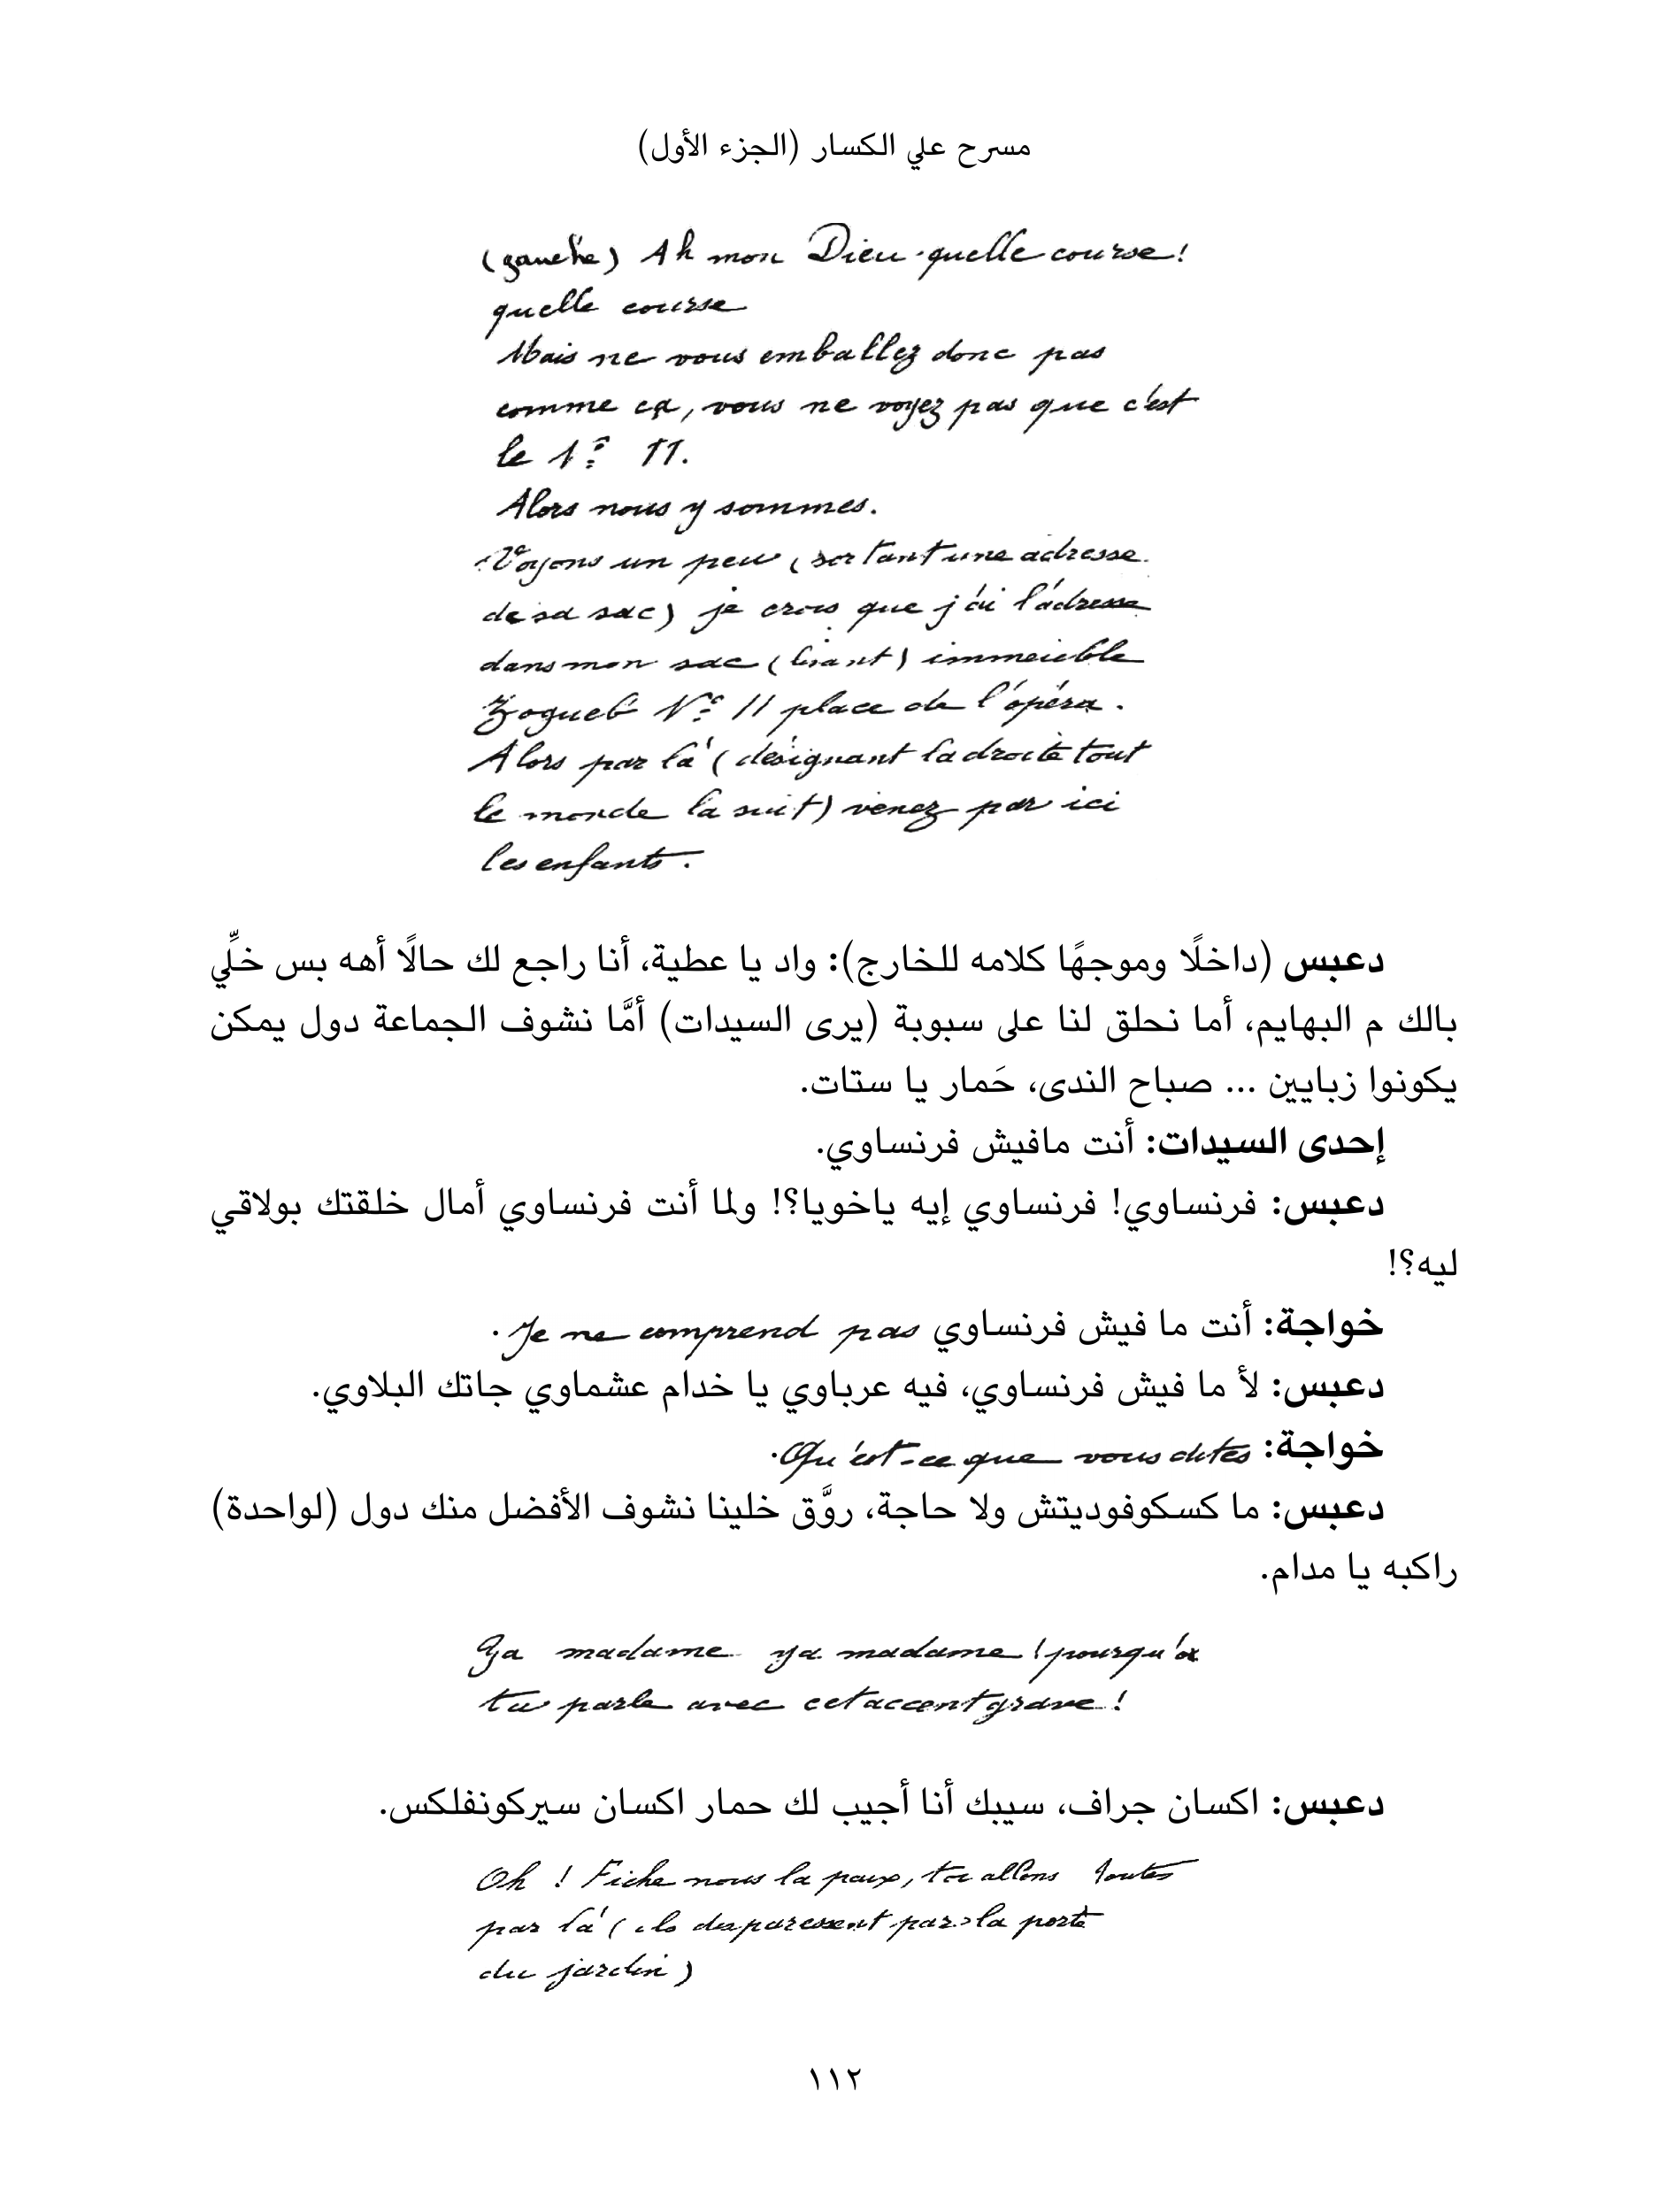 مسرح علي الكسار (الجزء الأول)
(gauche) Ah mon Dieu quelle course!
quelle course
Mais ne vous emballez donc pas
comme ça, vous ne voyez pas que c'est
le Nº 11.
Alors nous y sommes.
Voyons un peu (sortant une adresse
de sa sac) je crois que j'ai l'adresse
dans mon sac (lisant) immeuble
Zogueb Nº 11 place de l'opéra.
Alors par là (désignant la droite tout
le monde la suit) venez par ici
les enfants.
دعبس (داخلًا وموجهًا كلامه للخارج): واد يا عطية، أنا راجع لك حالًا أهه بس خلِّي
بالك م البهايم، أما نحلق لنا على سبوبة (يرى السيدات) أمَّا نشوف الجماعة دول يمكن
يكونوا زبايين ... صباح الندى، حَمار يا ستات.
إحدى السيدات: أنت مافيش فرنساوي.
دعبس: فرنساوي! فرنساوي إيه ياخويا؟! ولما أنت فرنساوي أمال خلقتك بولاقي
ليه؟!
خواجة: أنت ما فيش فرنساوي Je ne comprend pas.
دعبس: لأ ما فيش فرنساوي، فيه عرباوي يا خدام عشماوي جاتك البلاوي.
خواجة: Qu'est-ce que vous dites.
دعبس: ما كسكوفوديتش ولا حاجة، روَّق خلينا نشوف الأفضل منك دول (لواحدة)
راكبه يا مدام.
Ya madame ya madame! pourqu'oi
tu parle avec cet accent grave!
دعبس: اكسان جراف، سيبك أنا أجيب لك حمار اكسان سيركونفلكس.
Oh! Fiche nous la paix, allons toutes
par là (ils disparessent par la porte
du jardin)
١١٢